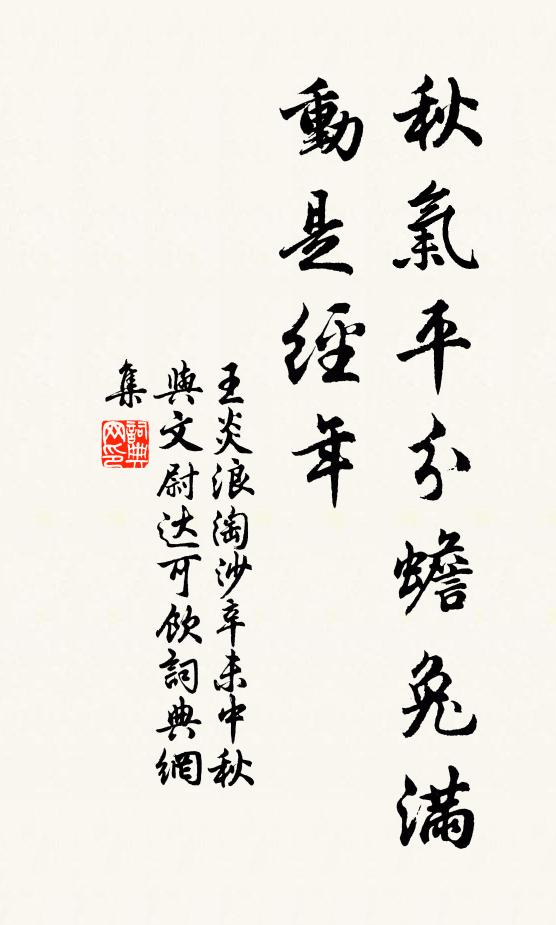 秋氣平分蟾兔滿
動是經年
王炎浪淘沙辛未中秋
與文尉达可飲詞典網
集
詞典
网印